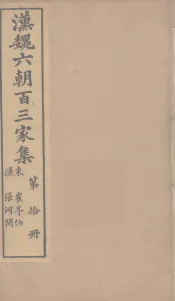 漢魏六朝百三家集
東漢
崔亭伯
張河間
第拾冊